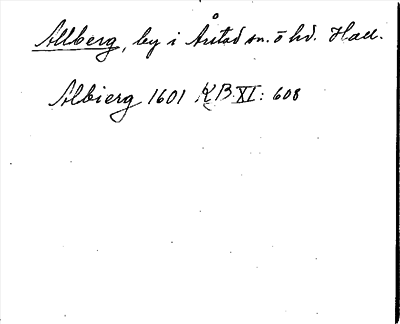 Allberg, by i Årstad sn. o hd. Hall.
Albierg 1601 KB XI: 608